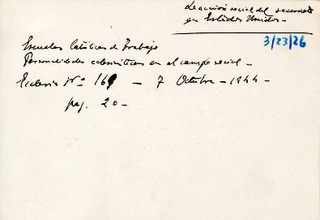 La acción social del sacerdote
en Estados Unidos -
3/23/26
Escuelas Católicas de Trabajo
Personalidades eclesiásticas en el campo social -
Ecclesia Nº 169 - 7 Octubre - 1944 -
pag. 20 -